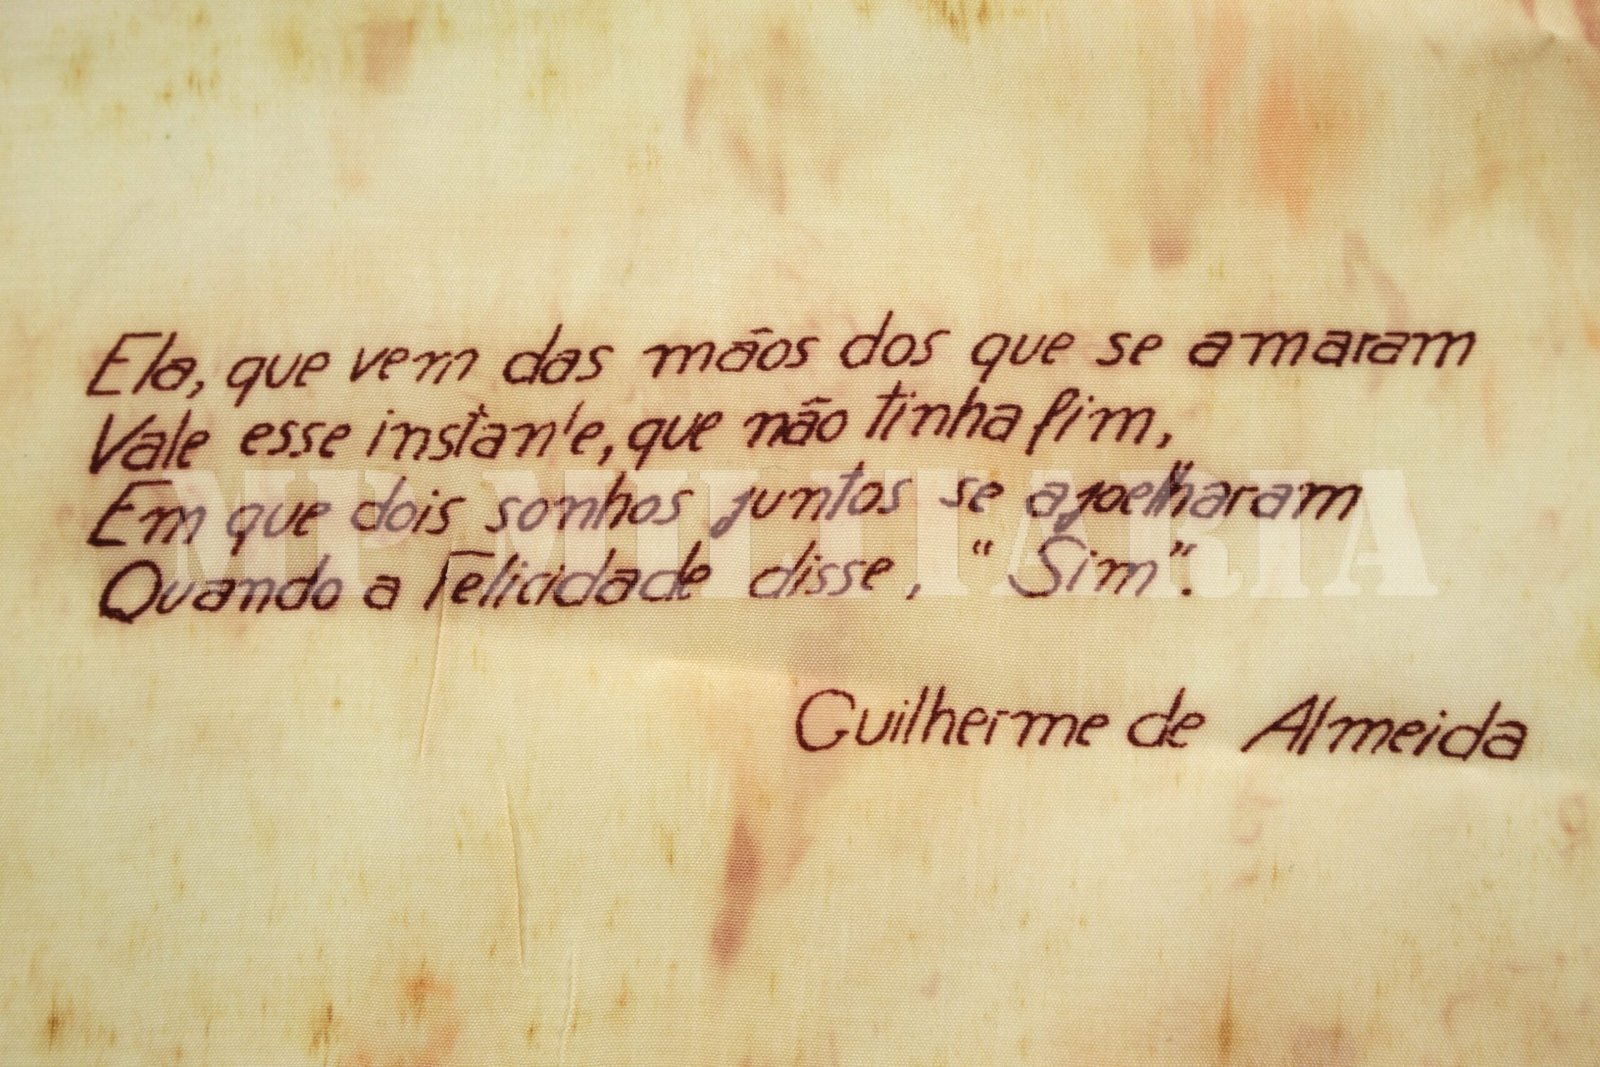 Ela, que vem das mãos dos que se amaram
Vale esse instante, que não tinha fim,
Em que dois sonhos juntos se ajoelharam
Quando a Felicidade disse, "Sim".
Guilherme de Almeida
MP MILITARIA